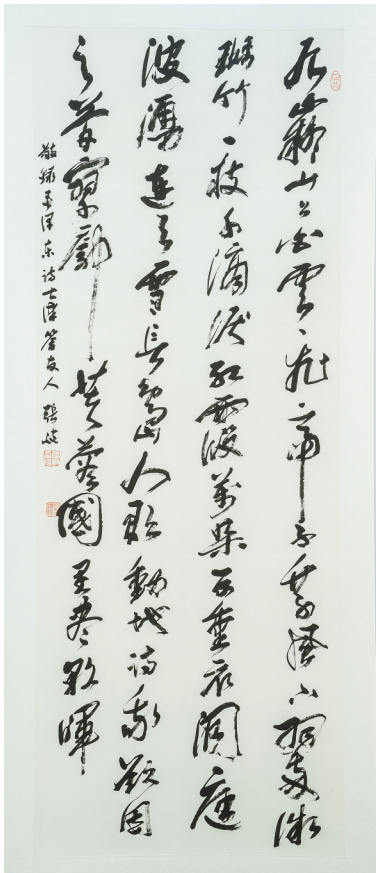 九嶷山上白雲飛帝子乘風下翠微
斑竹一枝千滴淚紅霞萬朵百重衣洞庭
波湧連天雪長島人歌動地詩我欲因
之夢寥廓芙蓉國里盡朝暉
敬録毛泽东诗七律答友人 張